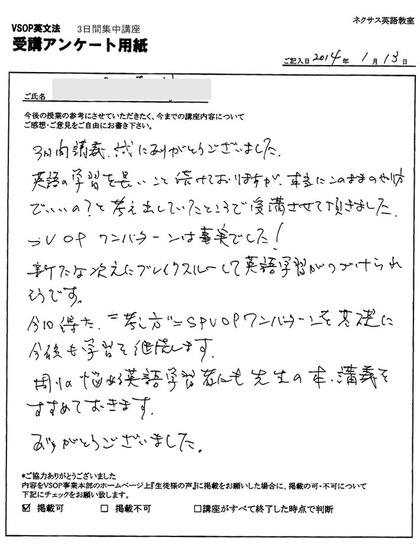 VSOP英文法 3日間集中講座
ネクサス英語教室
受講アンケート用紙
ご記入日 2014 年 1 月 13
ご氏名
今後の授業の参考にさせていただきたく、今までの講座内容について
ご感想・ご意見をご自由にお書き下さい。
3日間講義、誠にありがとうございました。
英語の学習を長いこと続けておりますが、本当にこのままのやり方
でいいの?と考え出していたところで受講させて頂きました。
SVOPワンパターンは事実でした!
新たな次元にブレイクスルーして英語学習がつづけられ
そうです。
今回得た、"考え方"=SPVOPワンパターンを基礎に
今後も学習を継続します。
周りの悩める英語学習者にも先生の本、講義を
すすめておきます。
ありがとうございました。
*ご協力ありがとうございました
内容をVSOP事業本部のホームページ上『生徒様の声』に掲載をお願いした場合に、掲載の可・不可について
下記にチェックをお願い致します。
☑ 掲載可 □ 掲載不可 □講座がすべて終了した時点で判断